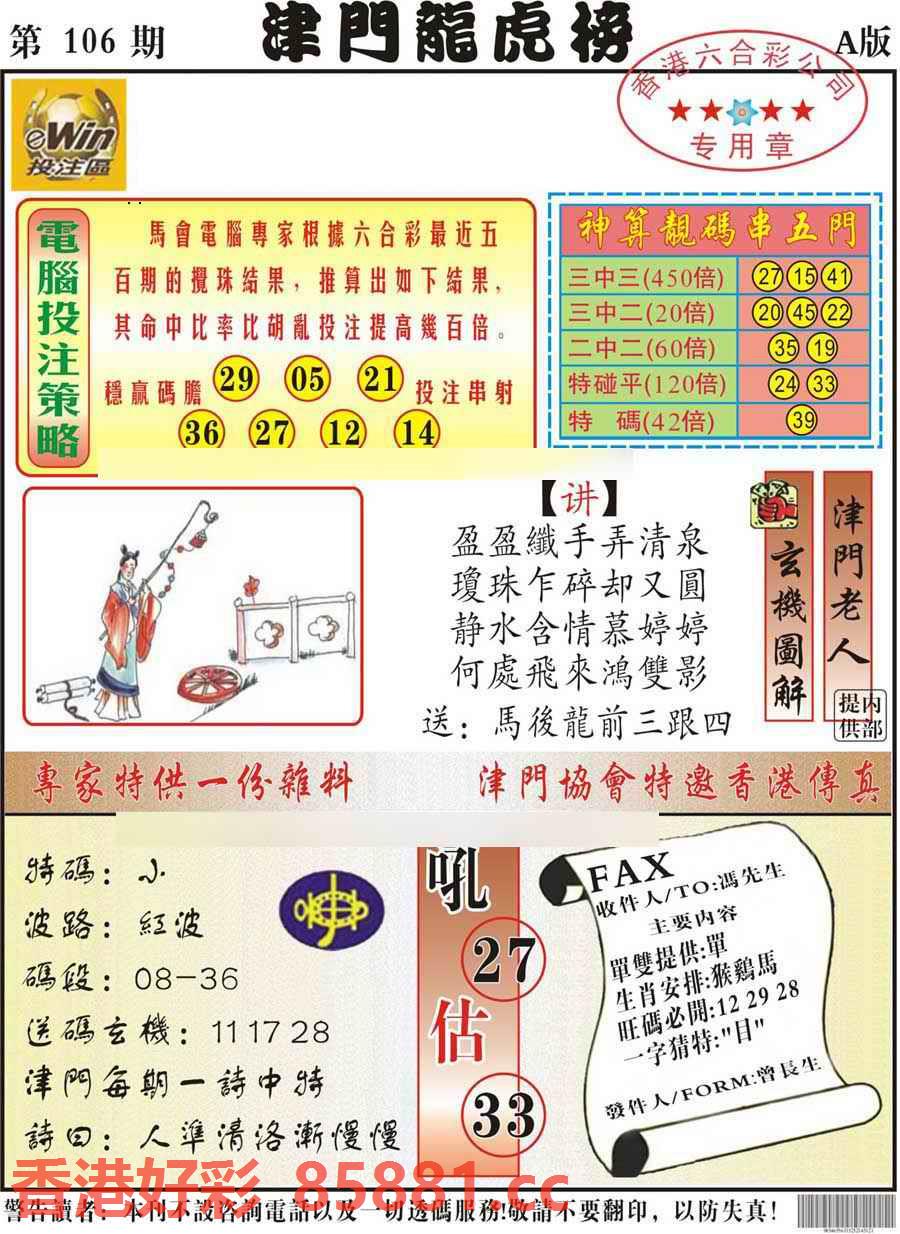 第 106 期
津門龍虎榜
A版
香港六合彩公司
专用章
eWin
投注區
電腦投注策略
馬會電腦專家根據六合彩最近五
百期的攪珠結果，推算出如下結果，
其命中比率比胡亂投注提高幾百倍。
穩贏碼膽 29 05 21 投注串射
36 27 12 14
神算靚碼串五門
三中三(450倍) 27 15 41
三中二(20倍) 20 45 22
二中二(60倍) 35 19
特碰平(120倍) 24 33
特 碼(42倍) 39
【讲】
盈盈纖手弄清泉
瓊珠乍碎却又圓
静水含情慕婷婷
何處飛來鴻雙影
送：馬後龍前三跟四
玄機圖解
津門老人
内部提供
專家特供一份雜料
津門協會特邀香港傳真
特碼：小
波路：紅波
碼段：08-36
送碼玄機：11 17 28
津門每期一詩中特
詩曰：人準清洛漸慢慢
吼
27
估
33
FAX
收件人/TO:馮先生
主要内容
單雙提供:單
生肖安排:猴鷄馬
旺碼必開:12 29 28
一字猜特:"目"
發件人/FORM:曾長生
香港好彩 85881.cc
警告讀者：本刊不設咨詢電話以及一切透碼服務!敬請不要翻印，以防失真!